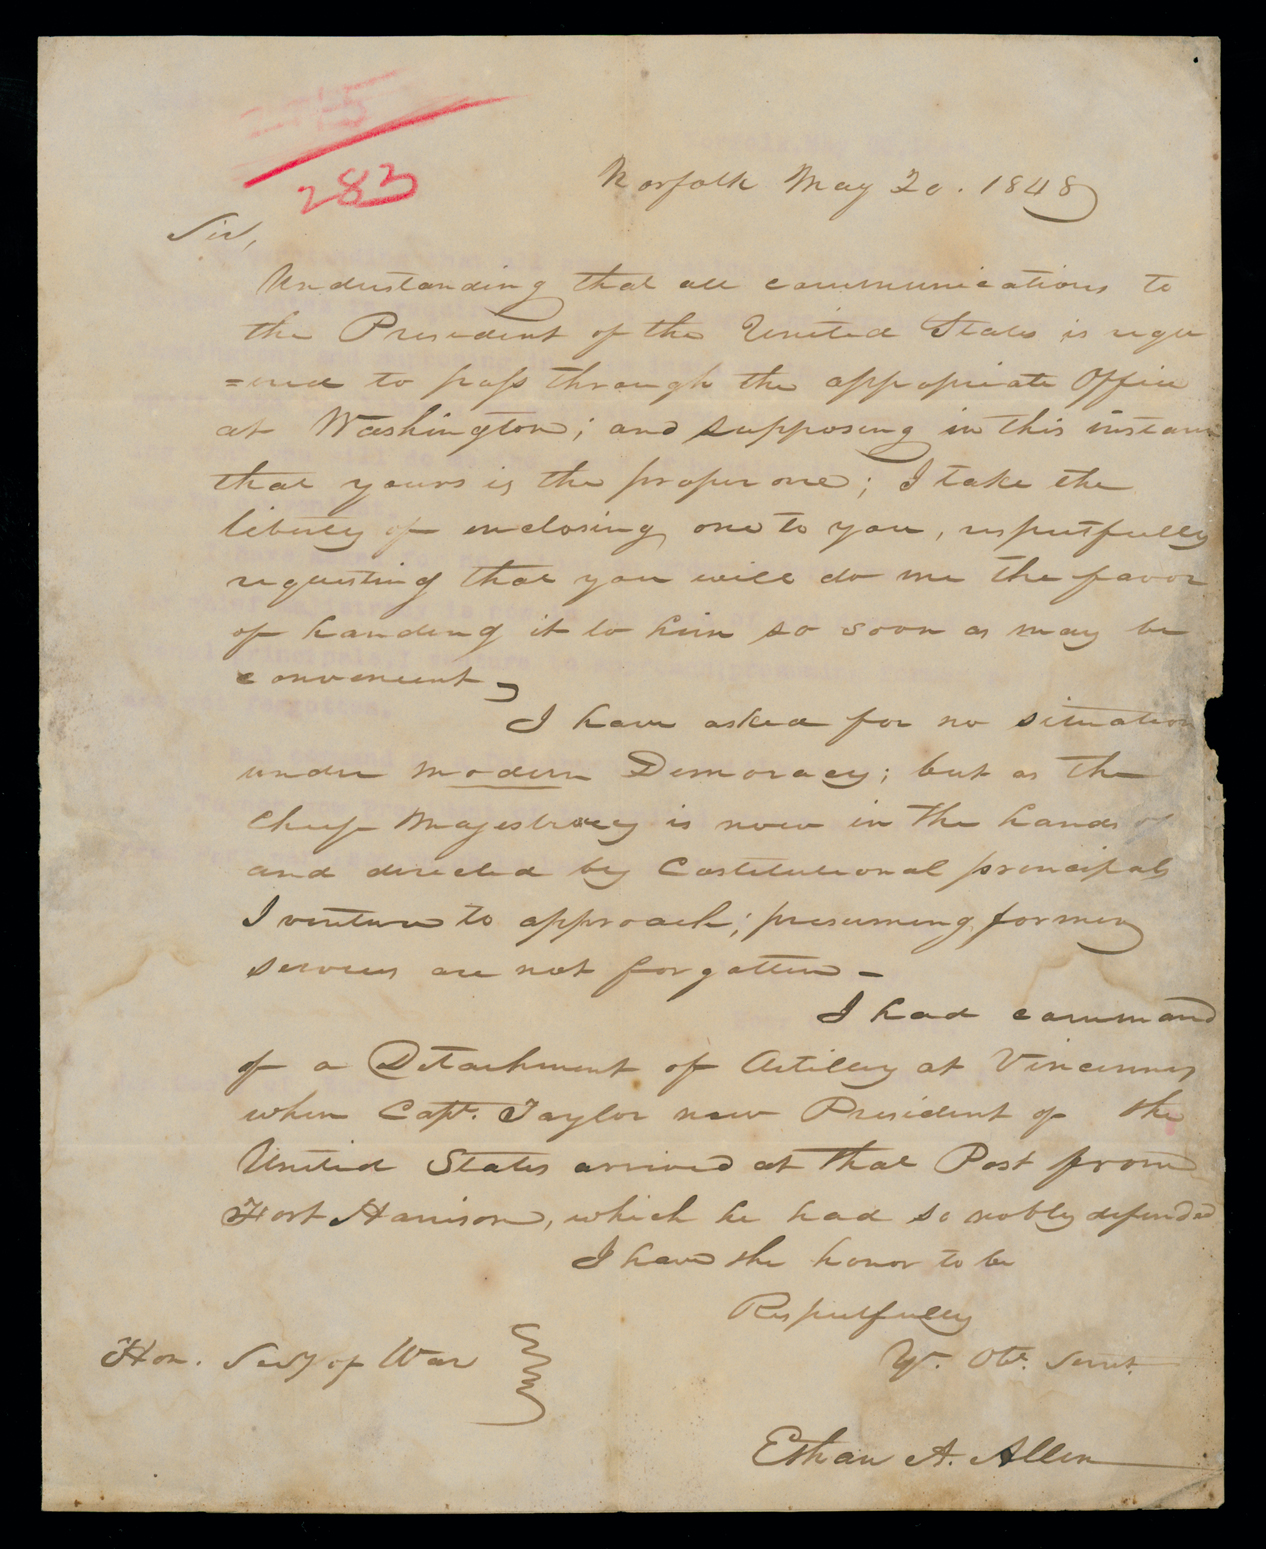 283
Norfolk May 20. 1848
Sir,
Understanding that all communications to
the President of the United States is requi
=red to pass through the appopriate Office
at Washington; and supposing in this instance
that yours is the proper one; I take the
liberty of enclosing one to you, respectfully
requesting that you will do me the favor
of handing it to him so soon as may be
convenient,
I have asked for no situation
under modern Democracy; but as the
Chief Majestracy is now in the hands of
and directed by Costitutional principals
I venture to approach; presuming former
services are not forgotten -
I had command
of a Detachment of Artillery at Vincennes
when Capt. Taylor now President of the
United States arrived at that Post from
Fort Harrison, which he had so nobly defended
I have the honor to be
Respectfully
Yr. Obt. Servt.
Hon. Secy of War
Ethan A. Allen